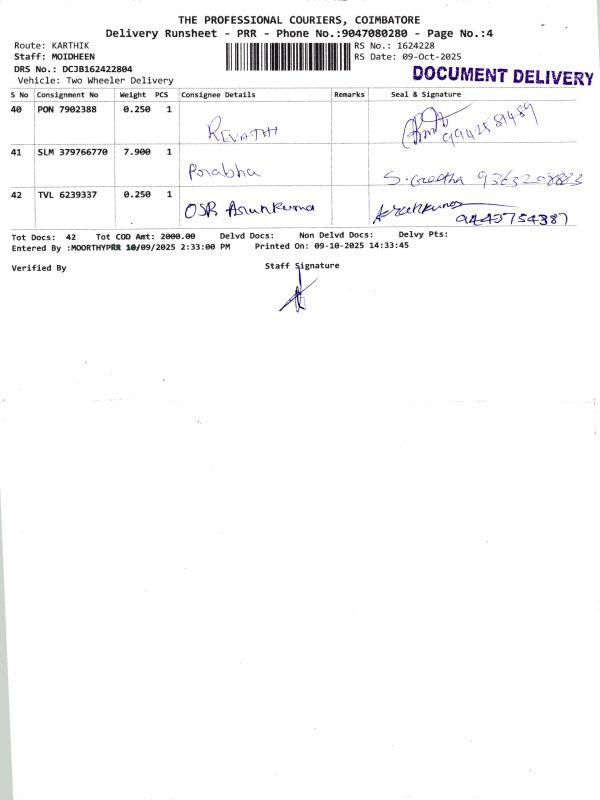 THE PROFESSIONAL COURIERS, COIMBATORE
Delivery Runsheet - PRR - Phone No.:9047080280 - Page No.:4
Route: KARTHIK RS No.: 1624228
Staff: MOIDHEEN RS Date: 09-Oct-2025
DRS No.: DCJB162422804
DOCUMENT DELIVERY
Vehicle: Two Wheeler Delivery
S No Consignment No Weight PCS Consignee Details Remarks Seal & Signature
40 PON 7902388 0.250 1
REVATHI 9942581489
41 SLM 379766770 7.900 1
Prabhu S. Geetha 9363208883
42 TVL 6239337 0.250 1
OSR Arunkumar Arunkumar 9443754387
Tot Docs: 42 Tot COD Amt: 2000.00 Delvd Docs: Non Delvd Docs: Delvy Pts:
Entered By :MOORTHYPRR 10/09/2025 2:33:00 PM Printed On: 09-10-2025 14:33:45
Verified By Staff Signature